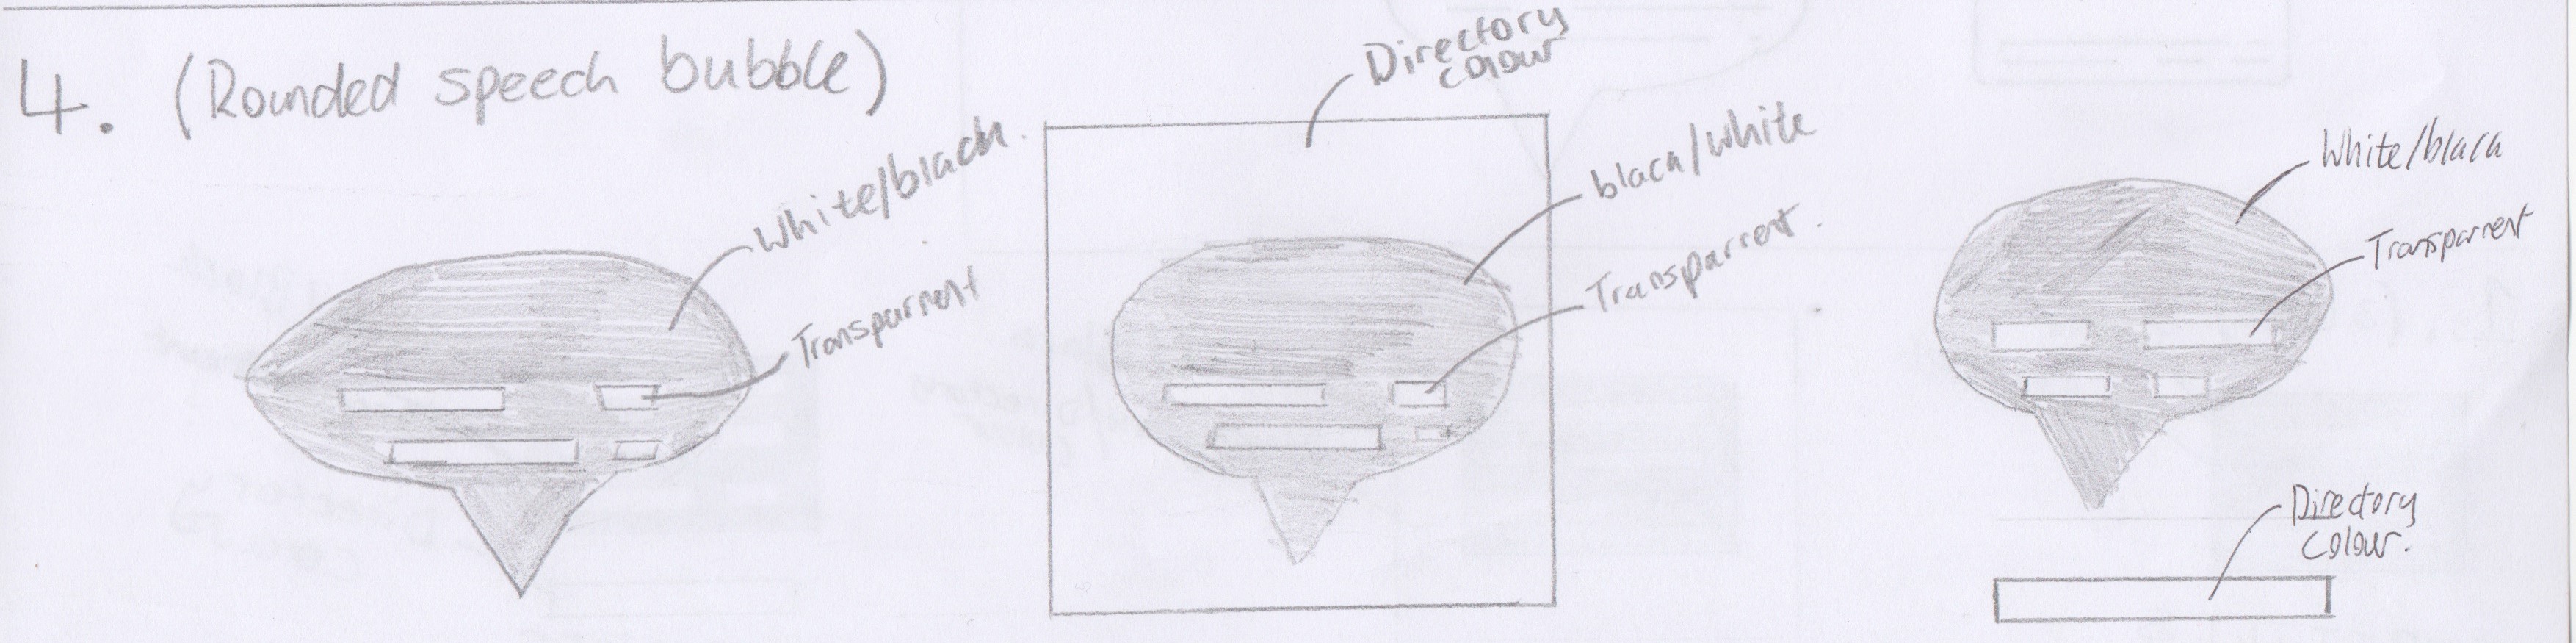 4. (Rounded speech bubble)
White/black.
Transparrent
Directory
colour
black/white
Transparrent.
White/black
Transparrent
Directory
colour.